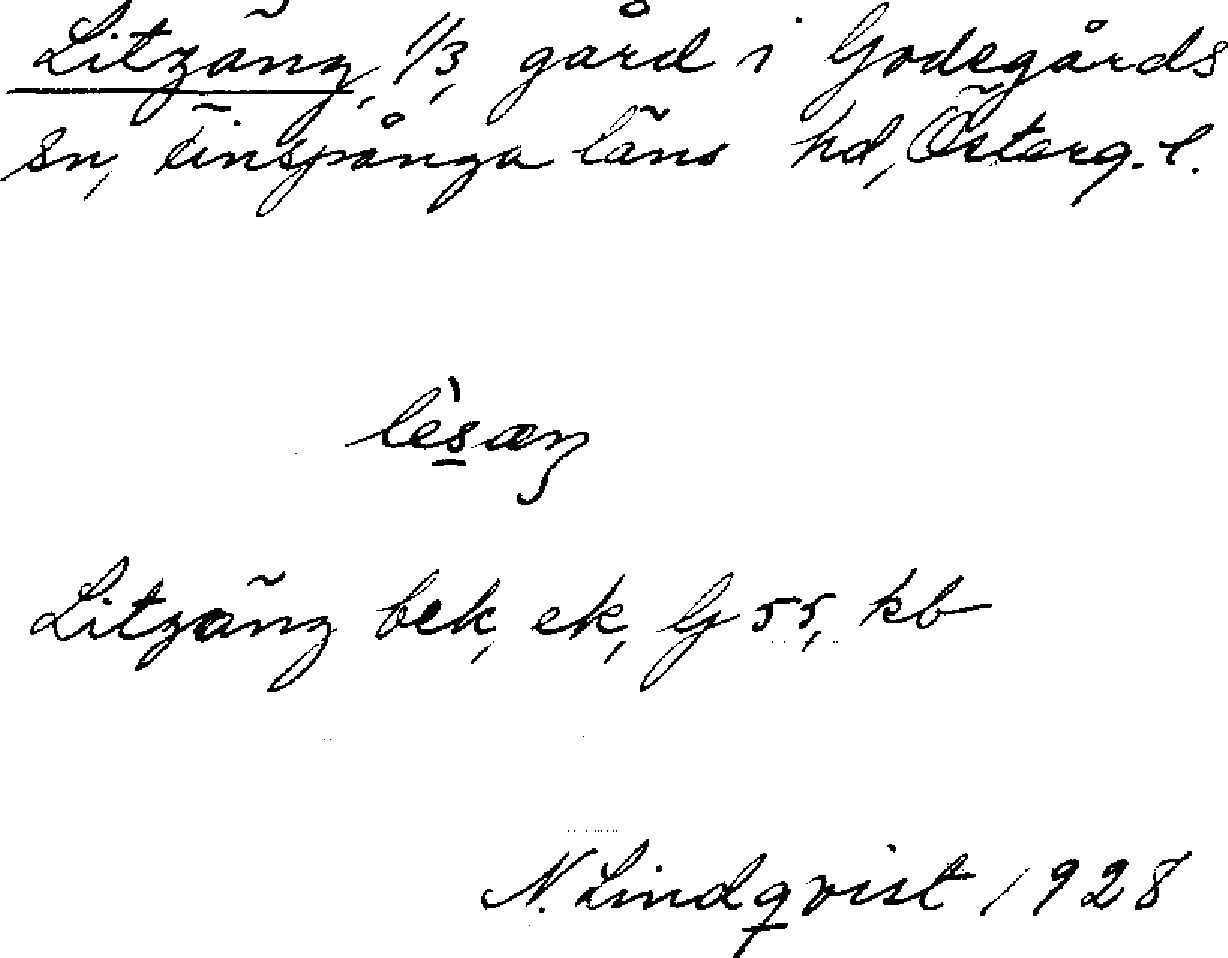 Litzäng, 1/3, gård i Godegårds
sn, Finspånga läns hd, Österg. l.
lèsæŋ
Litzäng bek, ek, G 55, kb
N. Lindqvist 1928